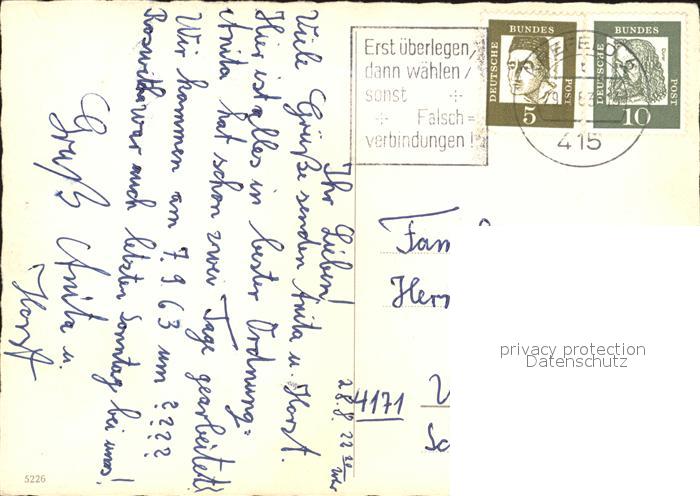 Ihr Lieben!
Viele Grüße senden Anita u. Horst.
Hier ist alles in bester Ordnung.
Anita hat schon zwei Tage gearbeitet!
Wir kommen am 7.9.63 um ????
Roswitha war auch letzten Sonntag bei uns!
Gruß Anita u.
Horst
28.8. 22 Uhr
5226
Erst überlegen,
dann wählen,
sonst
Falsch=
verbindungen!
DEUTSCHE BUNDES POST
5
DEUTSCHE BUNDES POST
10
415
Fam
Herr
4171
privacy protection
Datenschutz